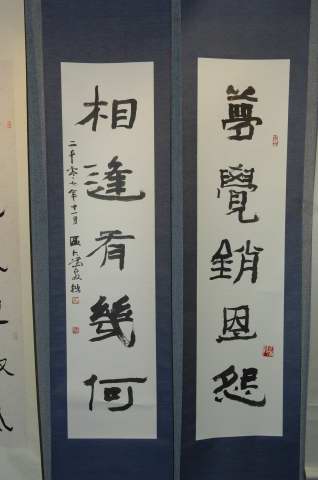 夢覺銷恩怨
相逢有幾何
二千零七年十一月